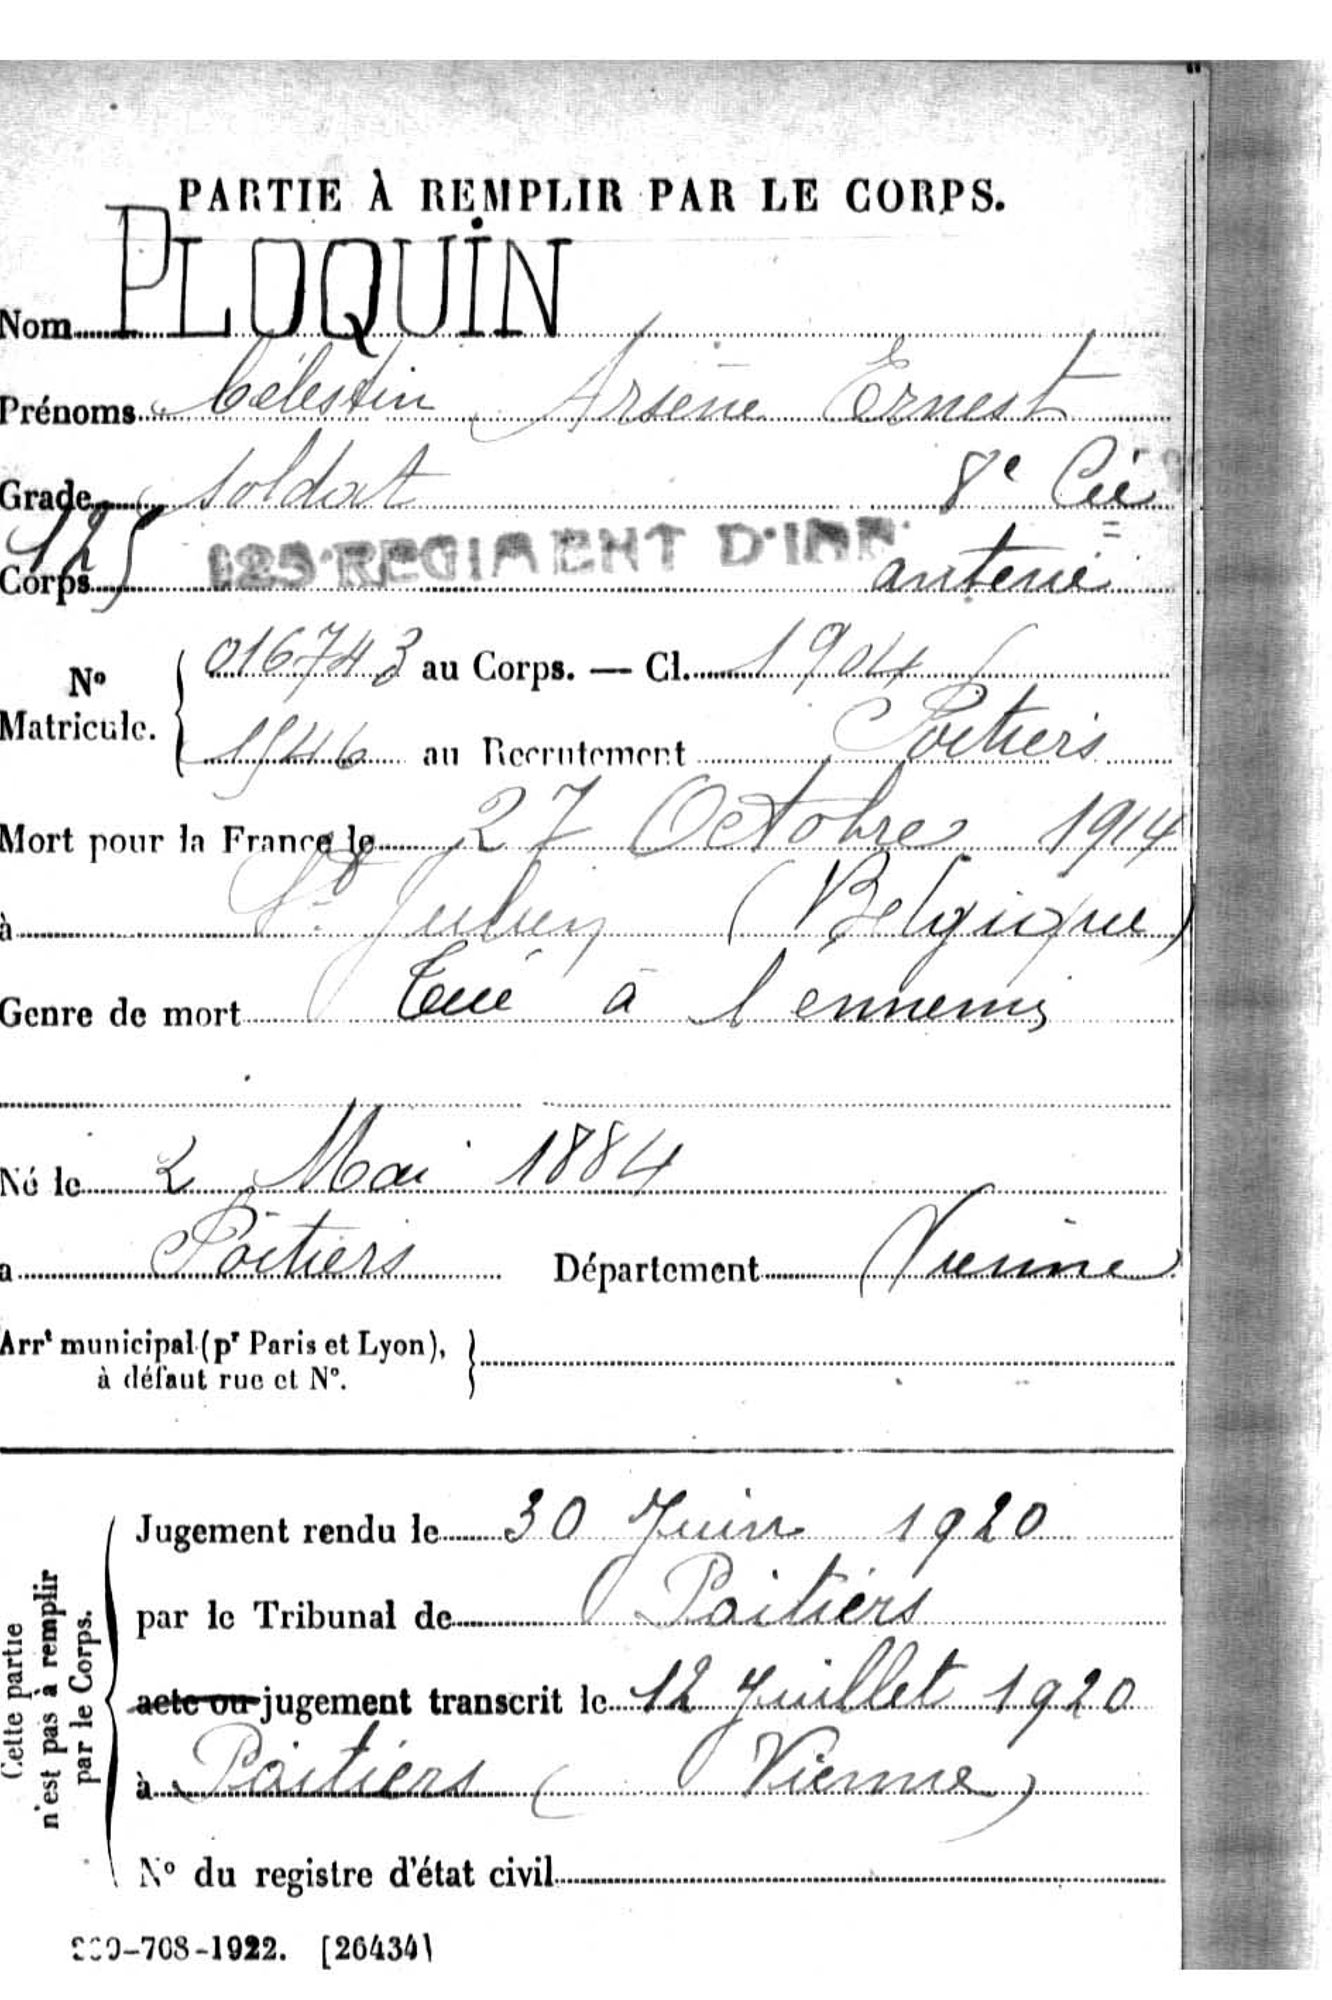 PARTIE À REMPLIR PAR LE CORPS.
Nom PLOQUIN
Prénoms Célestin Arsène Ernest
Grade soldat 8e Cie
125
Corps 125e REGIMENT D'INF
016743 au Corps. — Cl. 1904
No Matricule.
1546 au Recrutement Poitiers
Mort pour la France le 27 Octobre 1914
à St Julien (Belgique)
Genre de mort Tué à l'ennemi
Né le 2 Mai 1884
à Poitiers Département Vienne
Arrt municipal (pr Paris et Lyon),
à défaut rue et No.
Jugement rendu le 30 Juin 1920
par le Tribunal de Poitiers
acte ou jugement transcrit le 12 Juillet 1920
à Poitiers (Vienne)
No du registre d'état civil
Cette partie
n'est pas à remplir
par le Corps.
-708-1922. [26434]